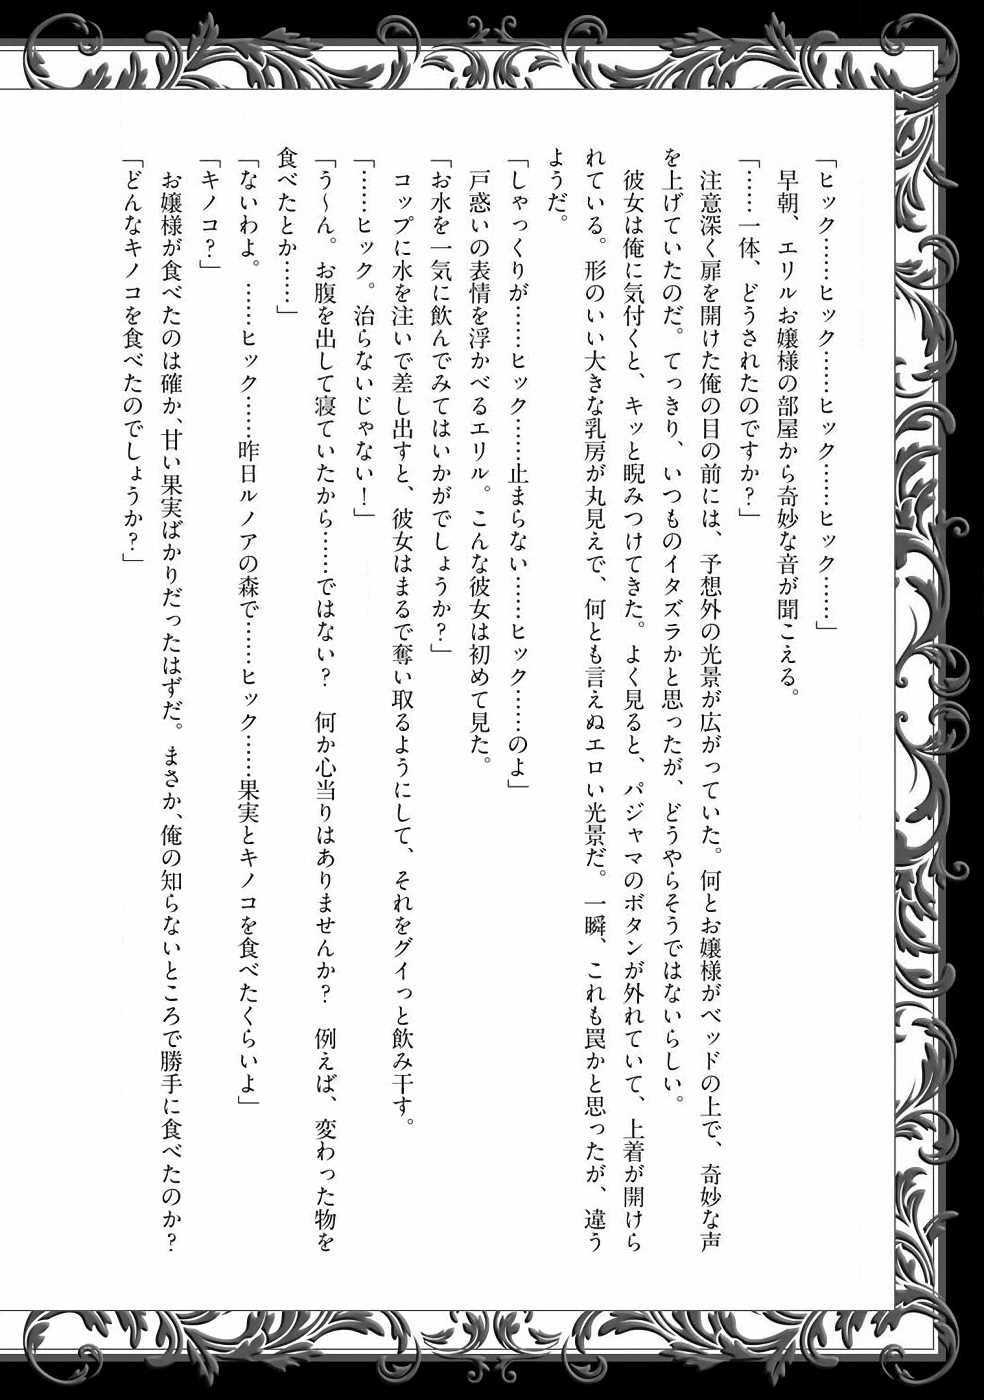 「ヒック……ヒック……ヒック……ヒック……」
早朝、エリルお嬢様の部屋から奇妙な音が聞こえる。
「……一体、どうされたのですか？」
注意深く扉を開けた俺の目の前には、予想外の光景が広がっていた。何とお嬢様がベッドの上で、奇妙な声
を上げていたのだ。てっきり、いつものイタズラかと思ったが、どうやらそうではないらしい。
彼女は俺に気付くと、キッと睨みつけてきた。よく見ると、パジャマのボタンが外れていて、上着が開けら
れている。形のいい大きな乳房が丸見えで、何とも言えぬエロい光景だ。一瞬、これも罠かと思ったが、違う
ようだ。
「しゃっくりが……ヒック……止まらない……ヒック……のよ」
戸惑いの表情を浮かべるエリル。こんな彼女は初めて見た。
「お水を一気に飲んでみてはいかがでしょうか？」
コップに水を注いで差し出すと、彼女はまるで奪い取るようにして、それをグイっと飲み干す。
「……ヒック。治らないじゃない！」
「う～ん。お腹を出して寝ていたから……ではない？　何か心当りはありませんか？　例えば、変わった物を
食べたとか……」
「ないわよ。……ヒック……昨日ルノアの森で……ヒック……果実とキノコを食べたくらいよ」
「キノコ？」
お嬢様が食べたのは確か、甘い果実ばかりだったはずだ。まさか、俺の知らないところで勝手に食べたのか？
「どんなキノコを食べたのでしょうか？」